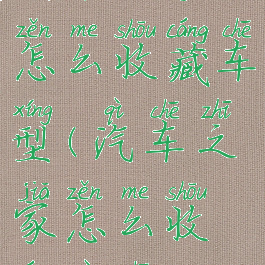 zěn me shōu cáng chē
怎么收藏车
xíng qì chē zhī
型(汽车之
jiā zěn me shōu
家怎么收